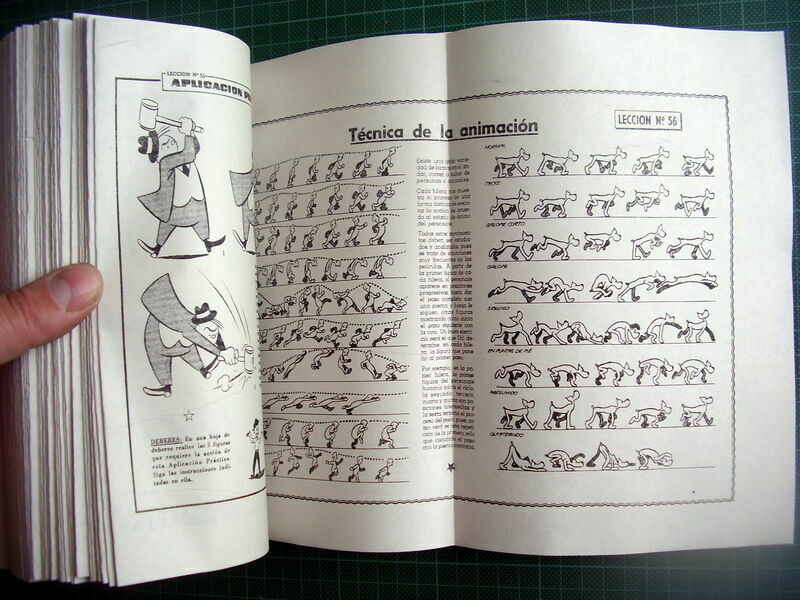 LECCION Nº 55
APLICACION
DEBERES: En una hoja de
deberes realice las 5 figuras
que requiere la acción de
esta Aplicación Práctica.
Siga las instrucciones indi-
cadas en ella.
Técnica de la animación
LECCION Nº 56
Existe una gran varie-
dad de formas en el an-
dar, correr o saltar de
personas o animales.
Cada hilera nos mues-
tra el proceso de una
forma distinta de ejecu-
tar la acción de acuer-
do al estado de ánimo
del personaje.
Todos estos movimien-
tos deben ser estudia-
dos y analizados pues
se trata de situaciones
muy frecuentes en las
películas. A partir de
la primer figura de ca-
da hilera, el personaje
aparece en posiciones
progresivas hasta dar
el paso completo con
una pierna y luego le
siguen otras figuras
mostrando cómo inicia
el paso siguiente con
la otra. Un buen ejerci-
cio será el que Ud. de-
termine, en cada hile-
ra, la figura que pone
fin al primer paso.
Por ejemplo, en la pri-
mer hilera, la primer
figura del personaje
humano inicia el ciclo,
la segunda, tercera,
cuarta y quinta son po-
siciones intermedias y
la sexta termina el pro-
ceso del paso, pues, co-
mo verá es una repeti-
ción de la primera, sólo
que iniciando el paso
con la pierna contraria.
NORMAL
TROTE
GALOPE CORTO
GALOPE
SIGILOSO
EN PUNTAS DE PIE
OLFATEANDO